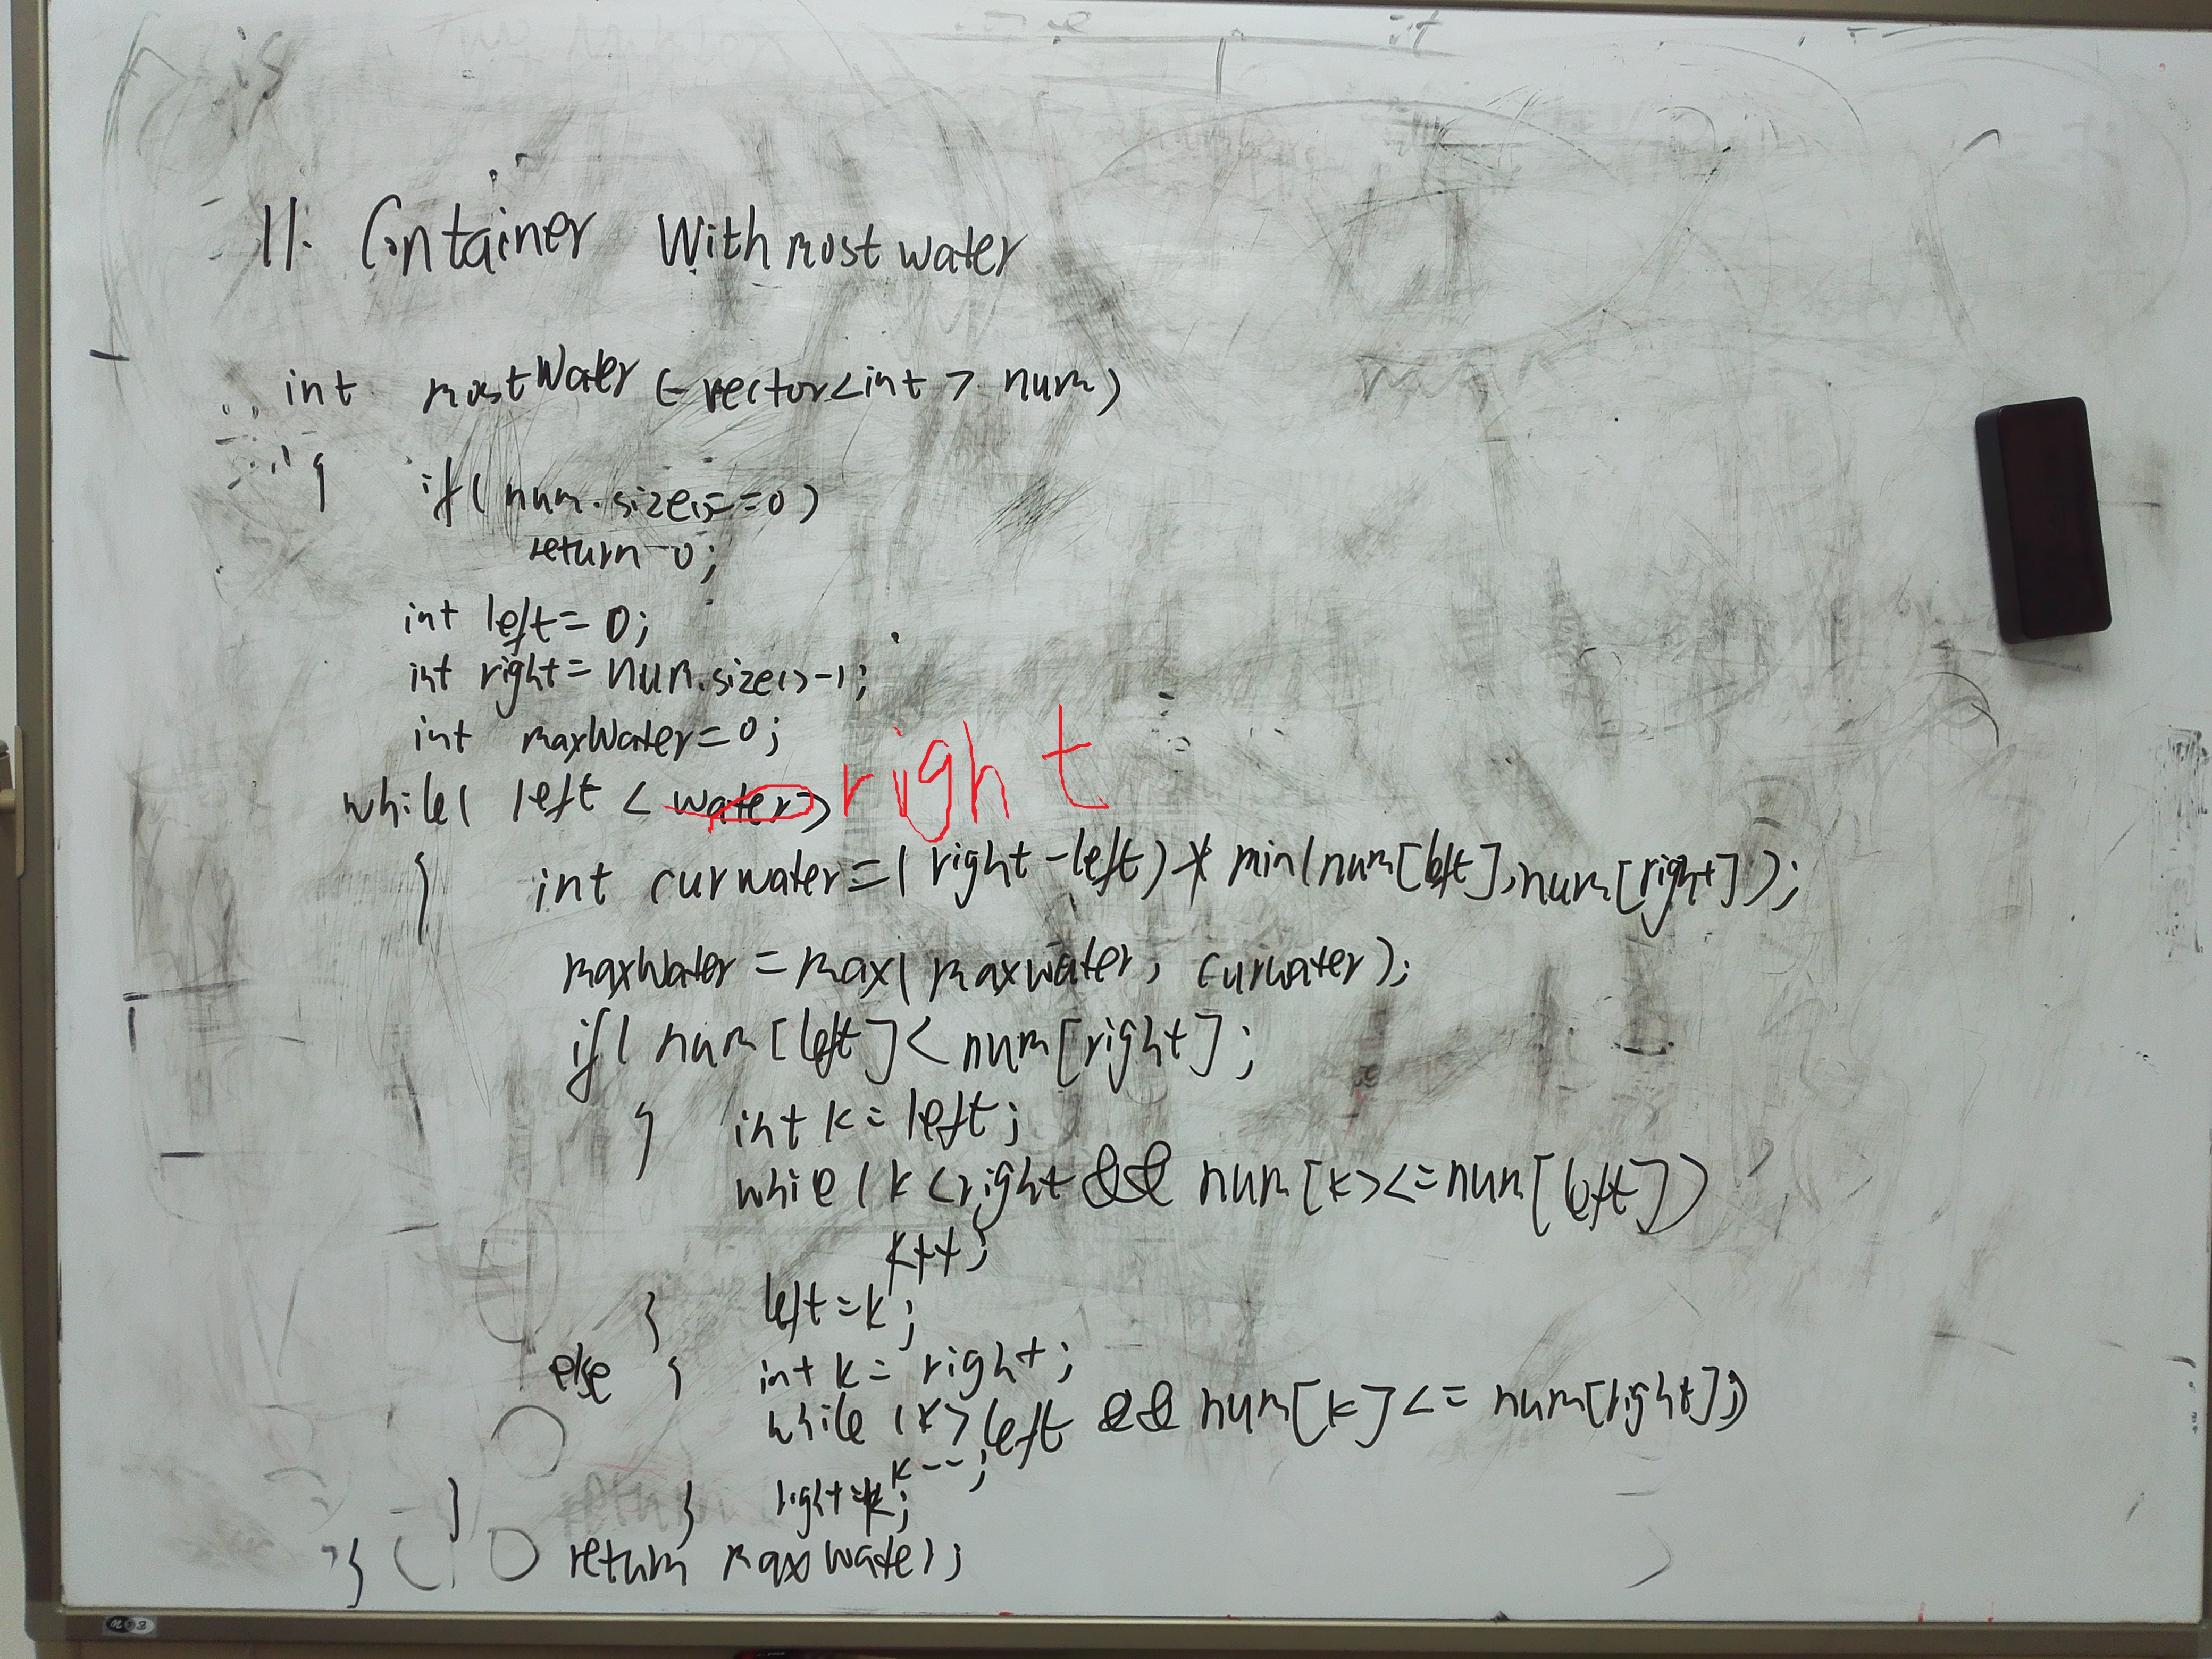 11. Container With most water
int mostWater (vector<int> num)
{ if( num.size()==0)
return 0;
int left = 0;
int right = num.size()-1;
int maxWater=0;
while( left < water) right
{ int curwater=( right-left) * min(num[left], num[right]);
maxWater = max( maxwater, curwater);
if( num[left]< num[right];
{ int k= left;
while (k<right && num[k><=num[left])
k++;
} left=k;
else { int k= right;
while (k> left && num[k]<= num[right])
k--;
} } right=k;
} return maxWater;